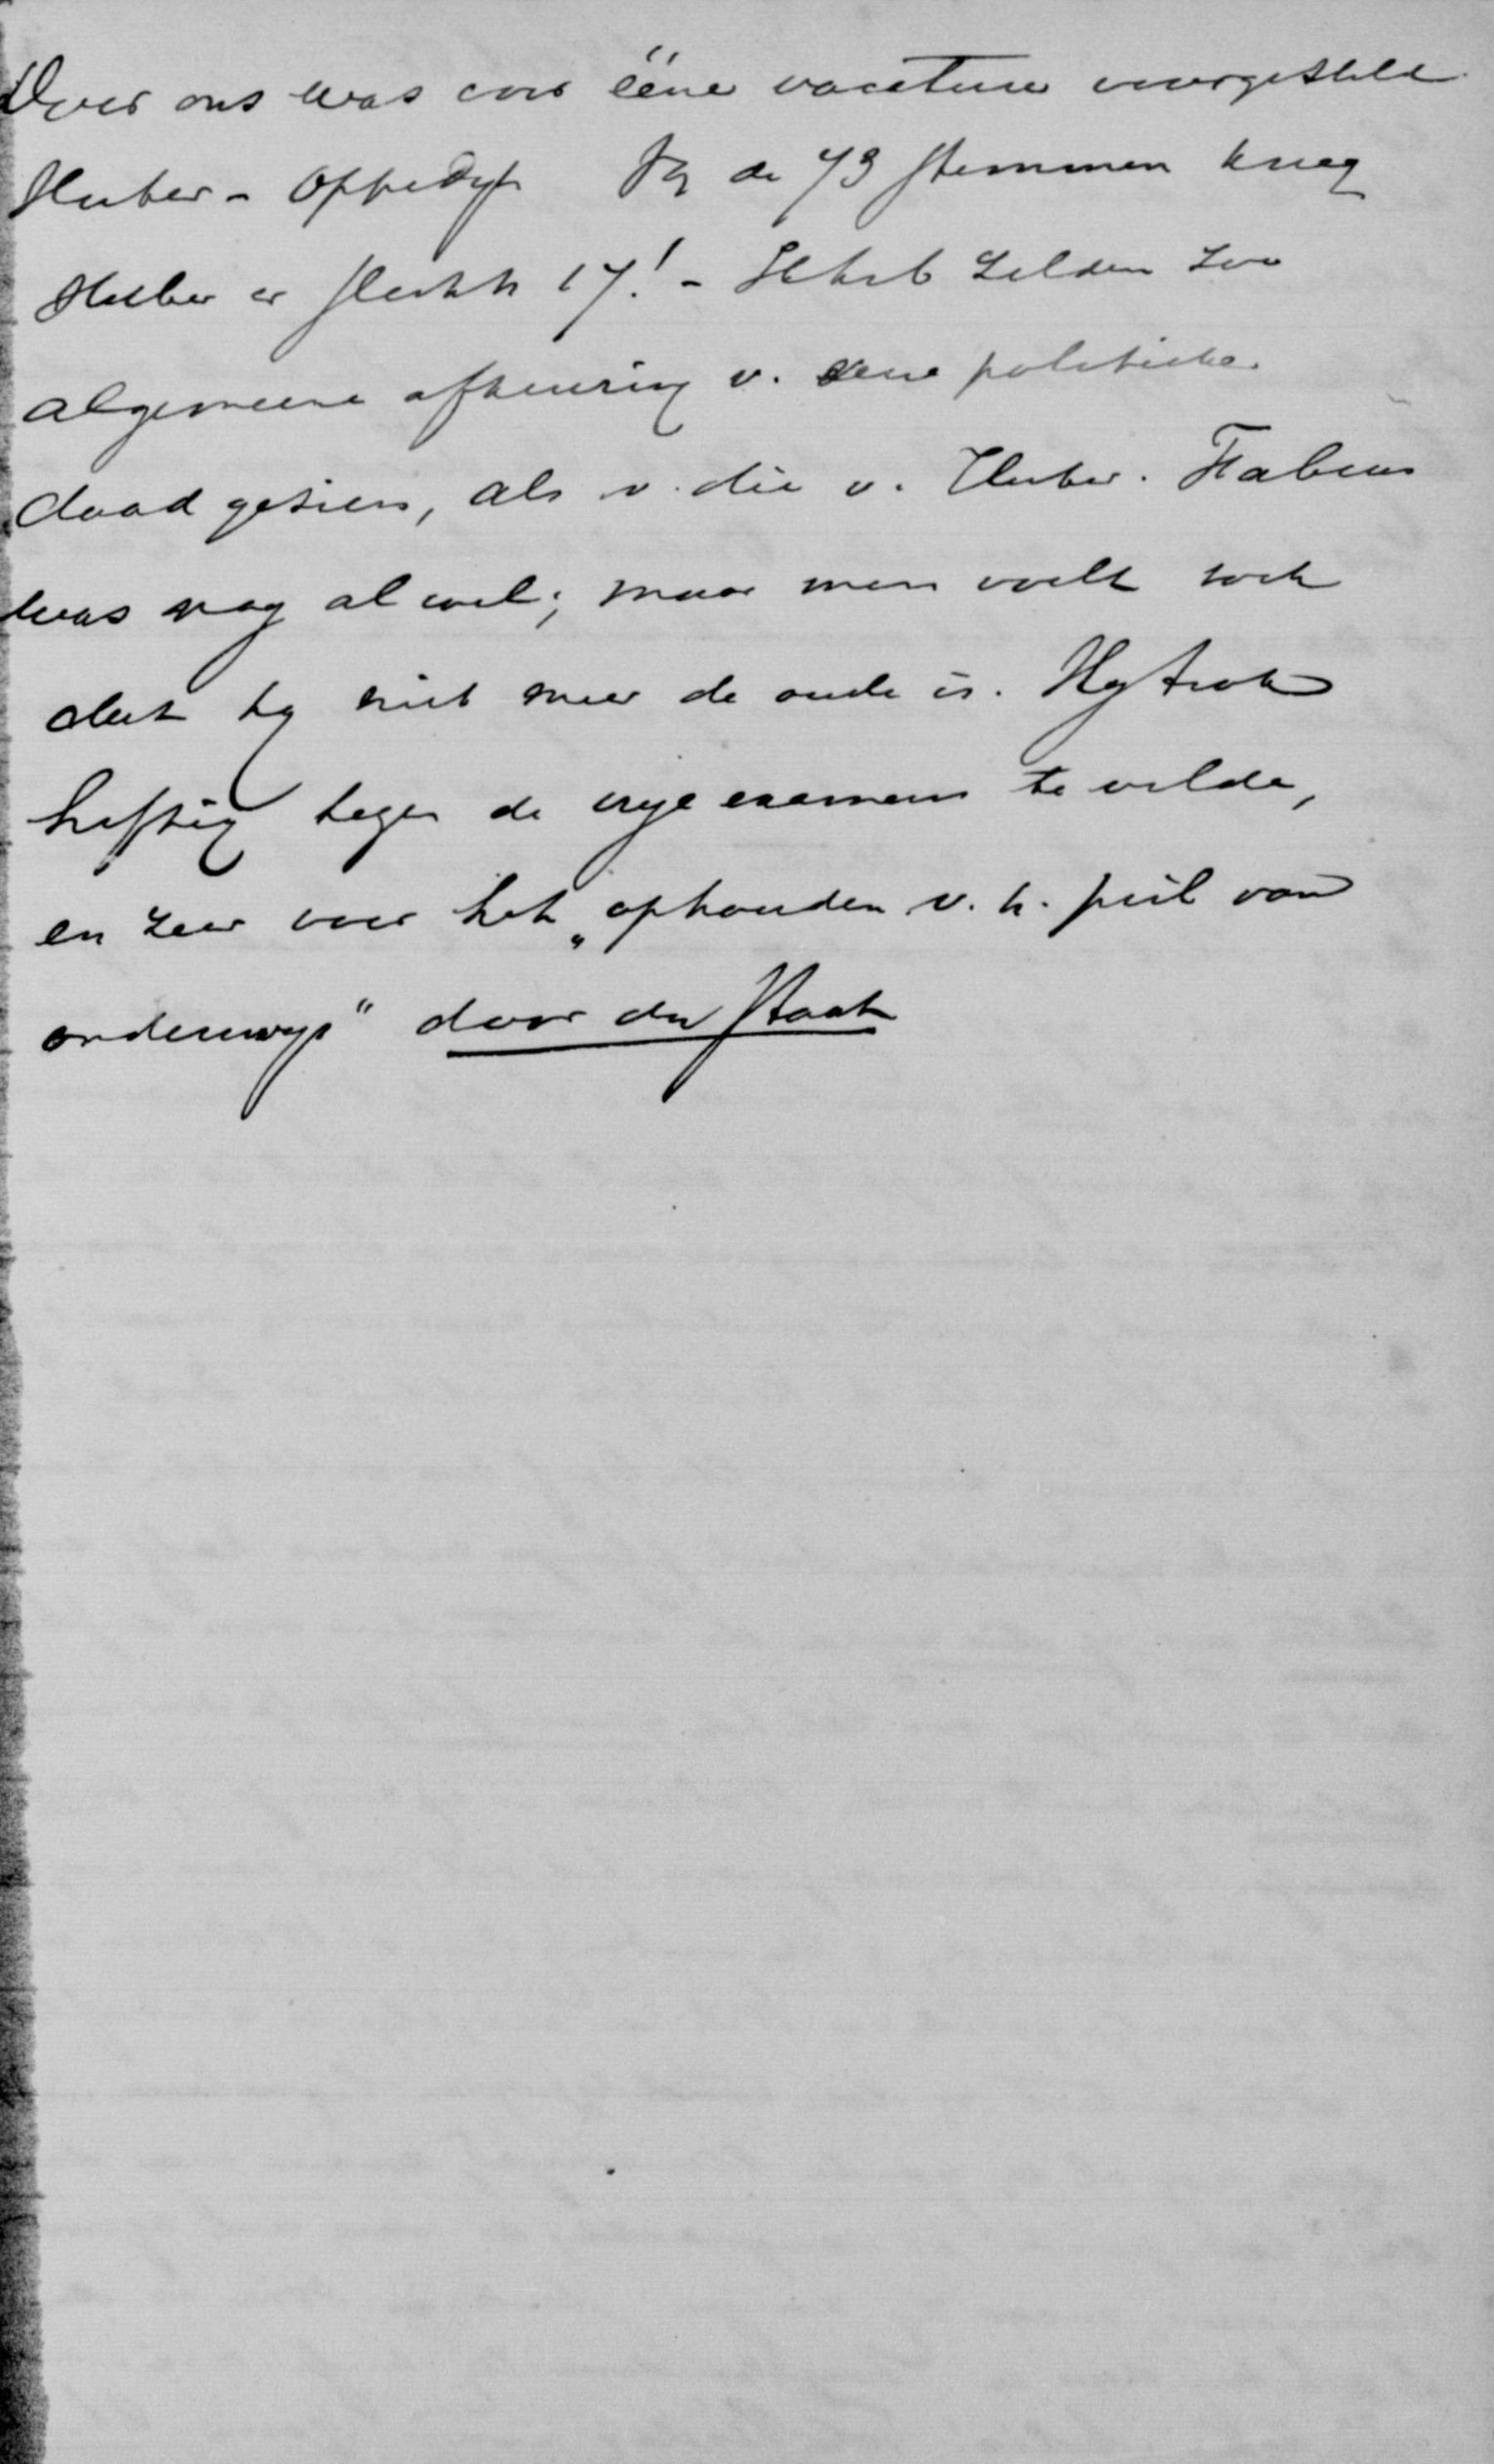 Door ons was voor ééne vacature voorgesteld
Huber - Oppedijk Bij de 73 stemmen kreeg
Huber er slechts 17! - Ik heb zelden zoo
algemeene afkeuring v. eene politieke
daad gezien, als v. die v. Huber. Fabius
was nog al wel; maar men voelt toch
dat hij niet meer de oude is. Hij trok
heftig tegen de vrije examens te velde,
en zeer voor het „ophouden v. h. peil van
onderwijs" door den Staat